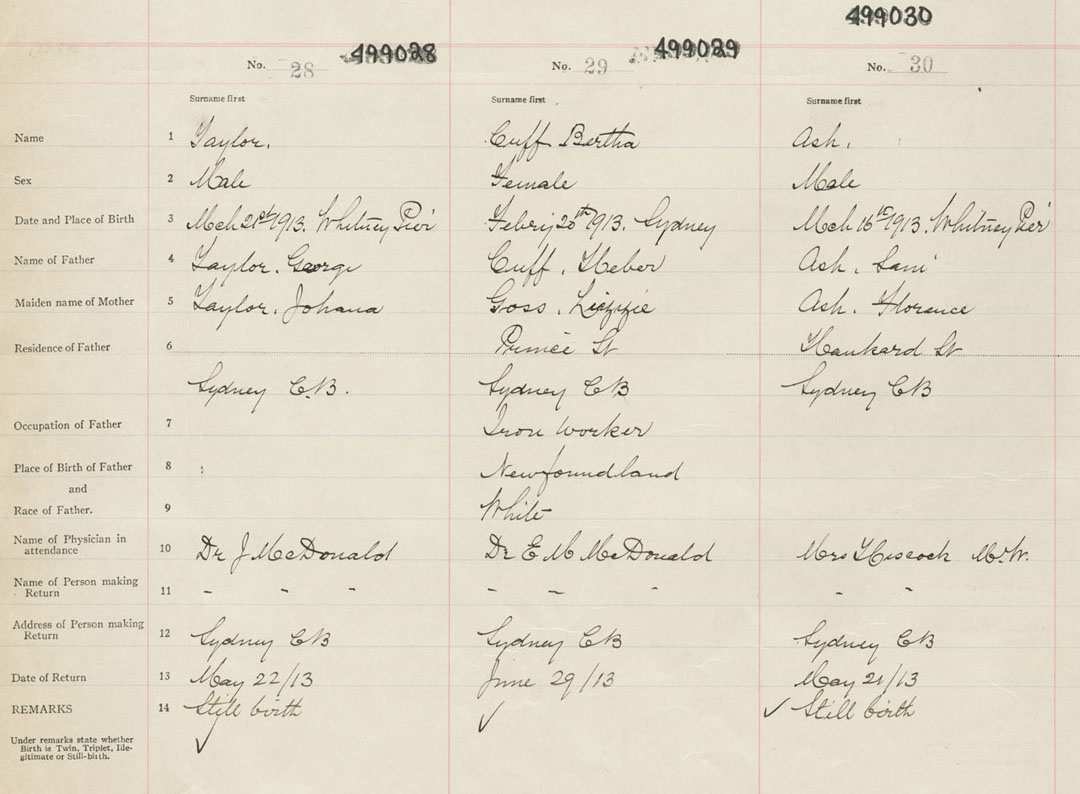 499030
499028 499029
No. 28 No. 29 No. 30
Surname first Surname first Surname first
Name 1 Taylor. Cuff Bertha Ash.
Sex 2 Male Female Male
Date and Place of Birth 3 Mch 21st 1913. Whitney Pier Febry 20th 1913. Sydney Mch 16th 1913. Whitney Pier
Name of Father 4 Taylor. George Cuff. Heber Ash. Sam
Maiden name of Mother 5 Taylor. Johana Goss. Lizzie Ash. Florence
Residence of Father 6 Prince St Hankard St
Sydney C.B. Sydney CB Sydney CB
Occupation of Father 7 Iron worker
Place of Birth of Father 8 Newfoundland
and
Race of Father. 9 White
Name of Physician in
attendance 10 Dr J McDonald Dr E M McDonald Mrs Hiscock M.W.
Name of Person making
Return 11 - - - - - - - -
Address of Person making
Return 12 Sydney CB Sydney CB Sydney CB
Date of Return 13 May 22/13 June 29/13 May 21/13
REMARKS 14 Still birth ✓ ✓ Still birth
Under remarks state whether ✓
Birth is Twin, Triplet, Ille-
gitimate or Still-birth.